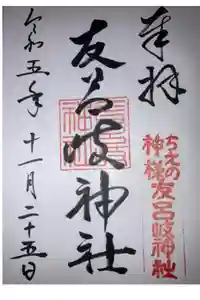 奉拝
ちえの神様友呂岐神社
友呂岐神社
令和五年十一月二十五日